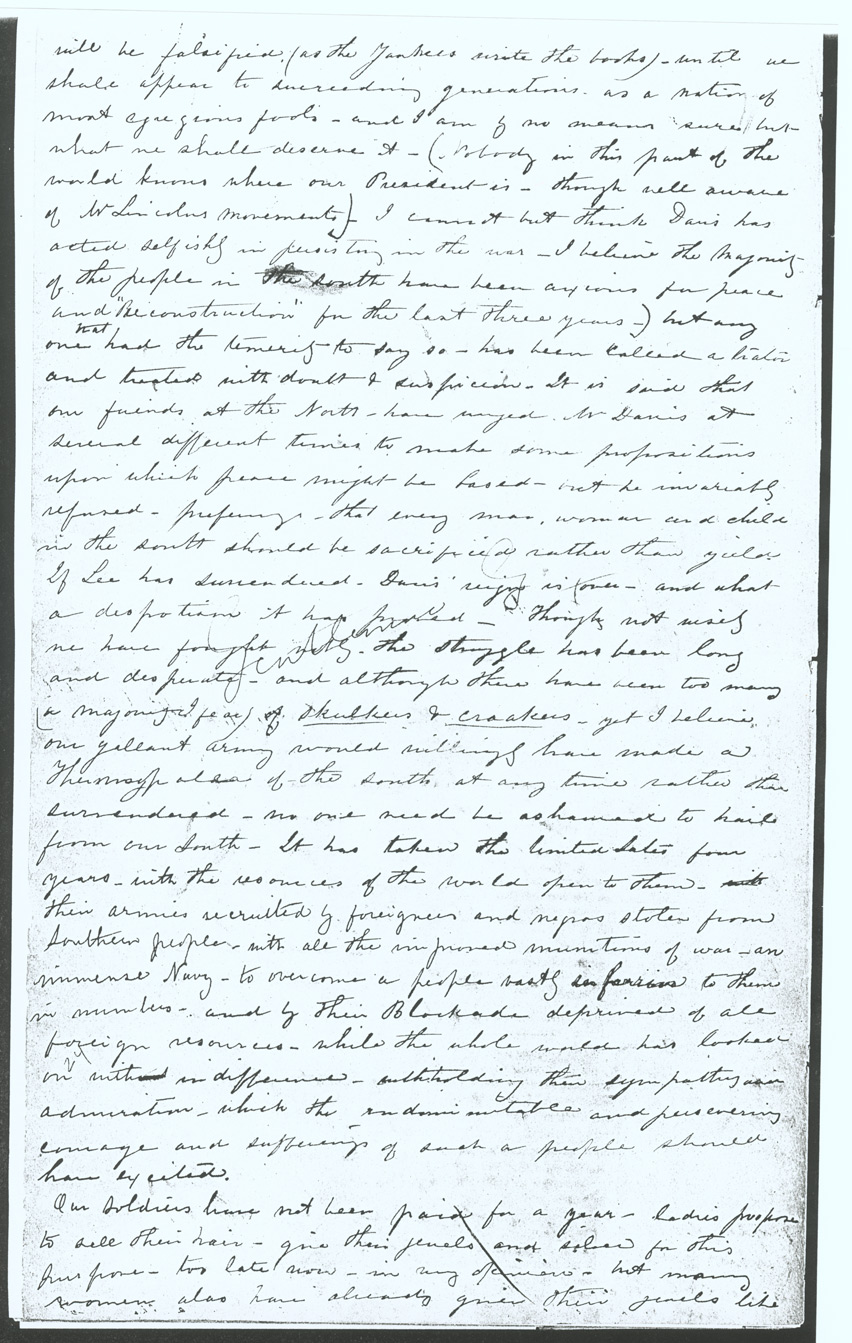 will be falsified (as the Yankees write the books) - until we
shall appear to succeeding generations. as a nation of
most egregious fools - and I am by no means sure but
what we shall deserve it - (Nobody in this part of the
world knows where our President is - though well aware
of Mr Lincolns movements) - I cannot but think Davis has
acted selfishly in persisting in the war - I believe the majority
of the people in the south have been anxious for peace
and "Reconstruction" for the last three years -) but any
one that had the temerity to say so - has been called a traitor
and treated with doubt & suspicion - It is said that
our friends at the North - have urged Mr Davis at
several different times to make some propositions
upon which peace might be based - but he invariably
refused - prefering - that every man, woman and child
in the south should be sacrificed rather than yield
If Lee has surrendered - Davis' reign is over - and what
a despotism it has proved - Though not wisely
we have fought well - the struggle has been long
and desperate - and although there have been too many
(a majority I fear) of skulkers & croakers - yet I believe
our gallant army would willingly have made a
Thermopalae of the south at any time rather than
surrendered - no one need be ashamed to hail
from our South - It has taken the United States four
years - with the resources of the world open to them -
their armies recruited by foreigners and negros stolen from
Southern people - with all the improved munitions of war - an
immense Navy - to overcome a people vastly inferior to them
in numbers - and by their Blockade deprived of all
foreign resources - while the whole world has looked
on with indifference - withholding their sympathy
admiration - which the and persevering
courage and sufferings of such a people should
have excited.
Our soldiers have not been paid for a year - ladies propose
to sell their hair - give their jewels and silver for this
purpose - too late now - in my opinion - but many
women also have already given their jewels like